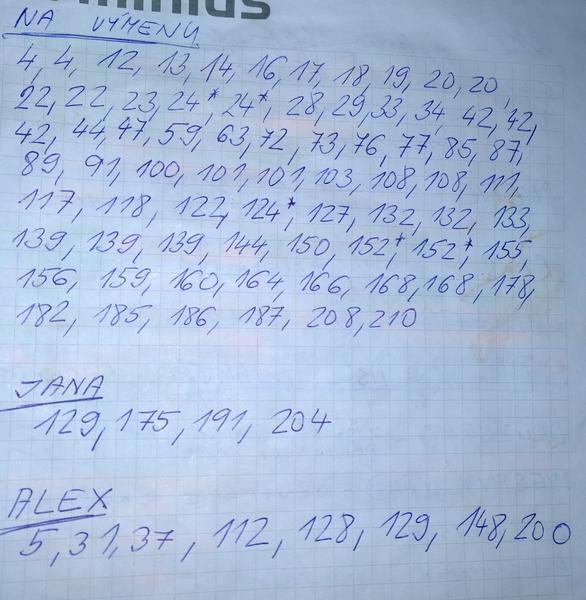 minius
NA VÝMENU
4, 4, 12, 13, 14, 16, 17, 18, 19, 20, 20,
22, 22, 23, 24*, 24*, 28, 29, 33, 34, 42, 42,
42, 44, 47, 59, 63, 72, 73, 76, 77, 85, 87,
89, 91, 100, 101, 101, 103, 108, 108, 111,
117, 118, 122, 124*, 127, 132, 132, 133,
139, 139, 139, 144, 150, 152*, 152*, 155,
156, 159, 160, 164, 166, 168, 168, 178,
182, 185, 186, 187, 208, 210
JANA
129, 175, 191, 204
ALEX
5, 31, 37, 112, 128, 129, 148, 200